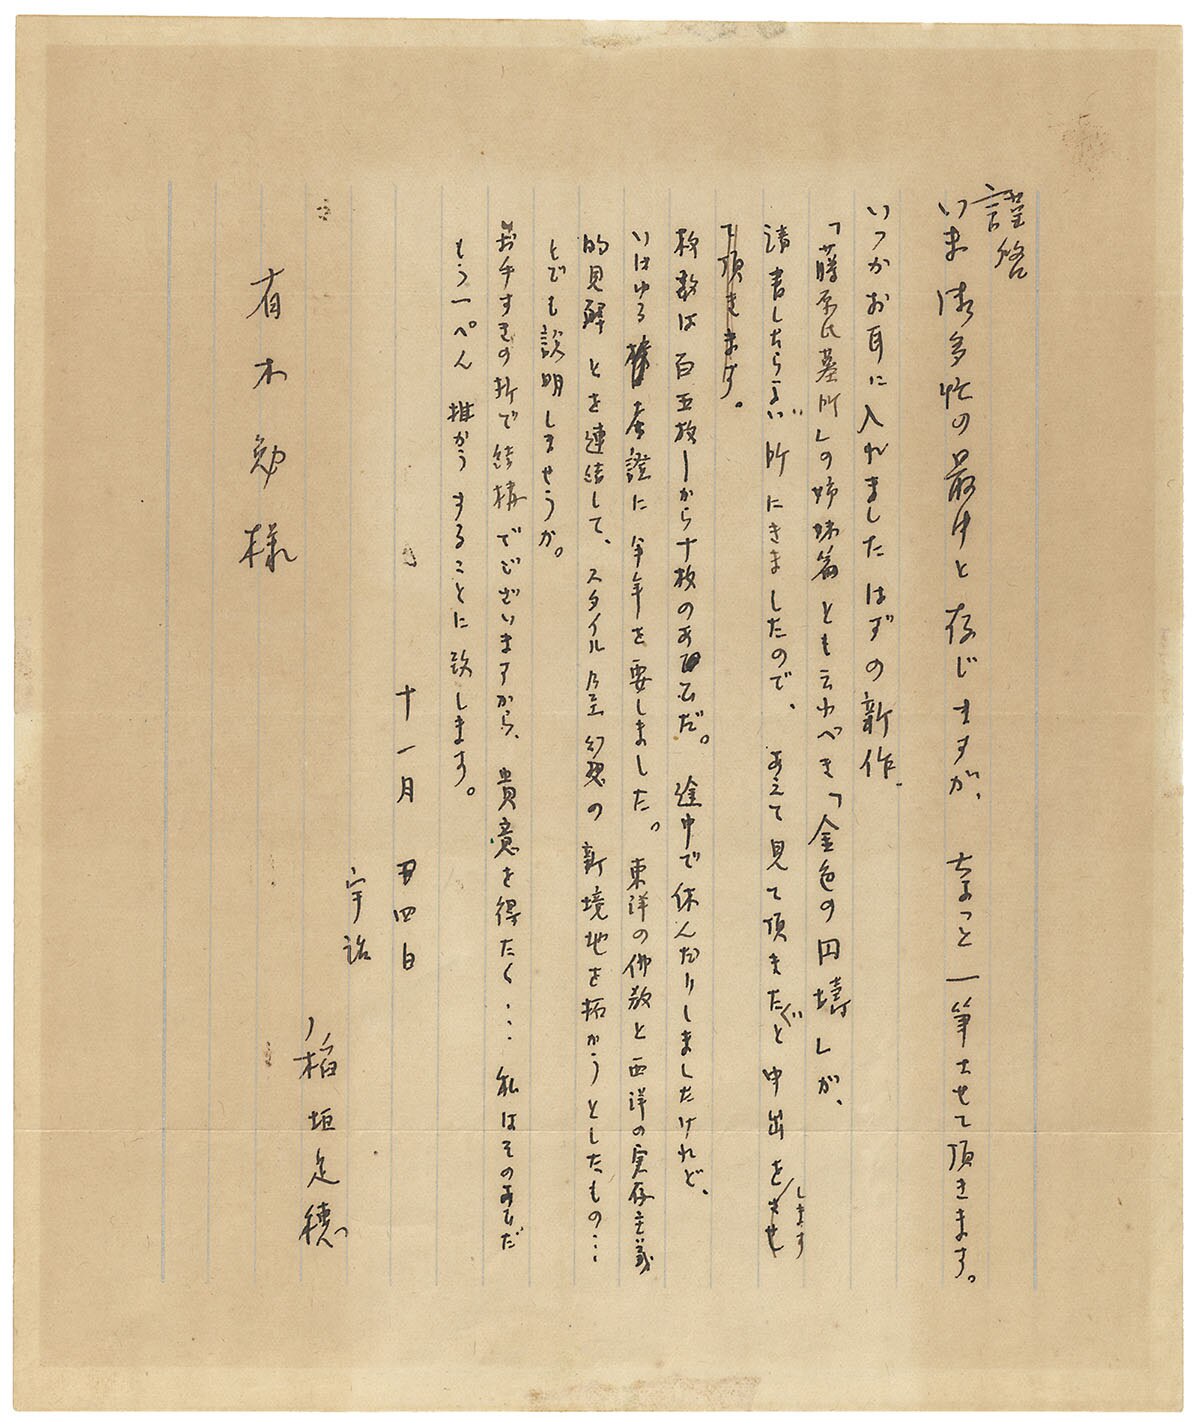 謹啓
いま御多忙の最中と存じますが、ちょっと一筆させて頂きます。
いつかお耳に入れましたはずの新作、
「藤原氏墓所」の姉妹篇とも云ふべき「金色の円壔」が、
清書したらよい所にきましたので、あえて見て頂きたくと申出をします
て頂きます。
枚数は百五枚―から十枚のあひだ。途中で休んだりしましたけれど、
いはゆる 考證に 年を要しました。東洋の佛教と西洋の実存主義
的見解とを連結して、スタイル乃至幻想の新境地を拓かうとしたもの…
とでも説明しませうか。
お手すきの折で結構でございますから、貴意を得たく…私はそのあひだ
もう一ぺん推かうすることに致します。
十一月 四日
宇治
稲垣足穂
有木勉様